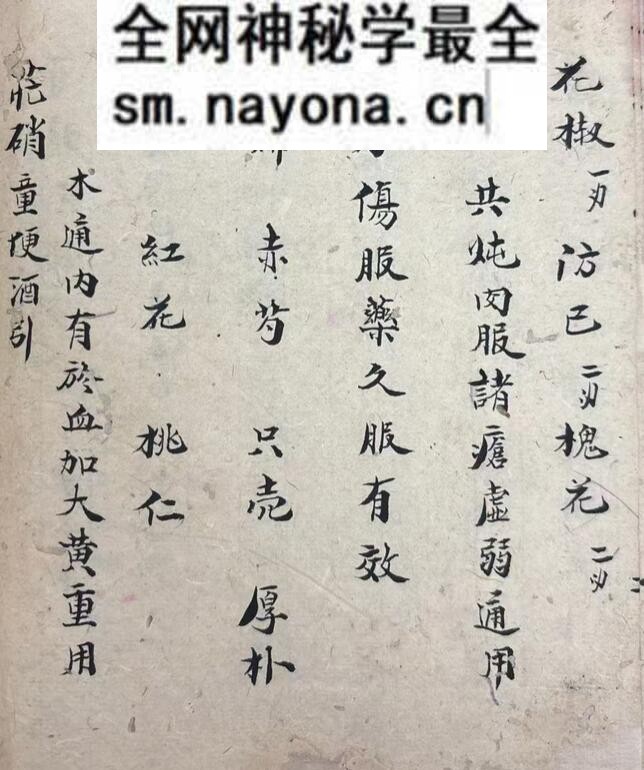 全网神秘学最全
sm.nayona.cn
花椒 一刃 防已 二刃 槐花 二刃
共炖肉服諸瘡虛弱通用
傷服藥久服有效
赤芍 只壳 厚朴
紅花 桃仁
木通内有於血加大黄重用
硝童便酒引